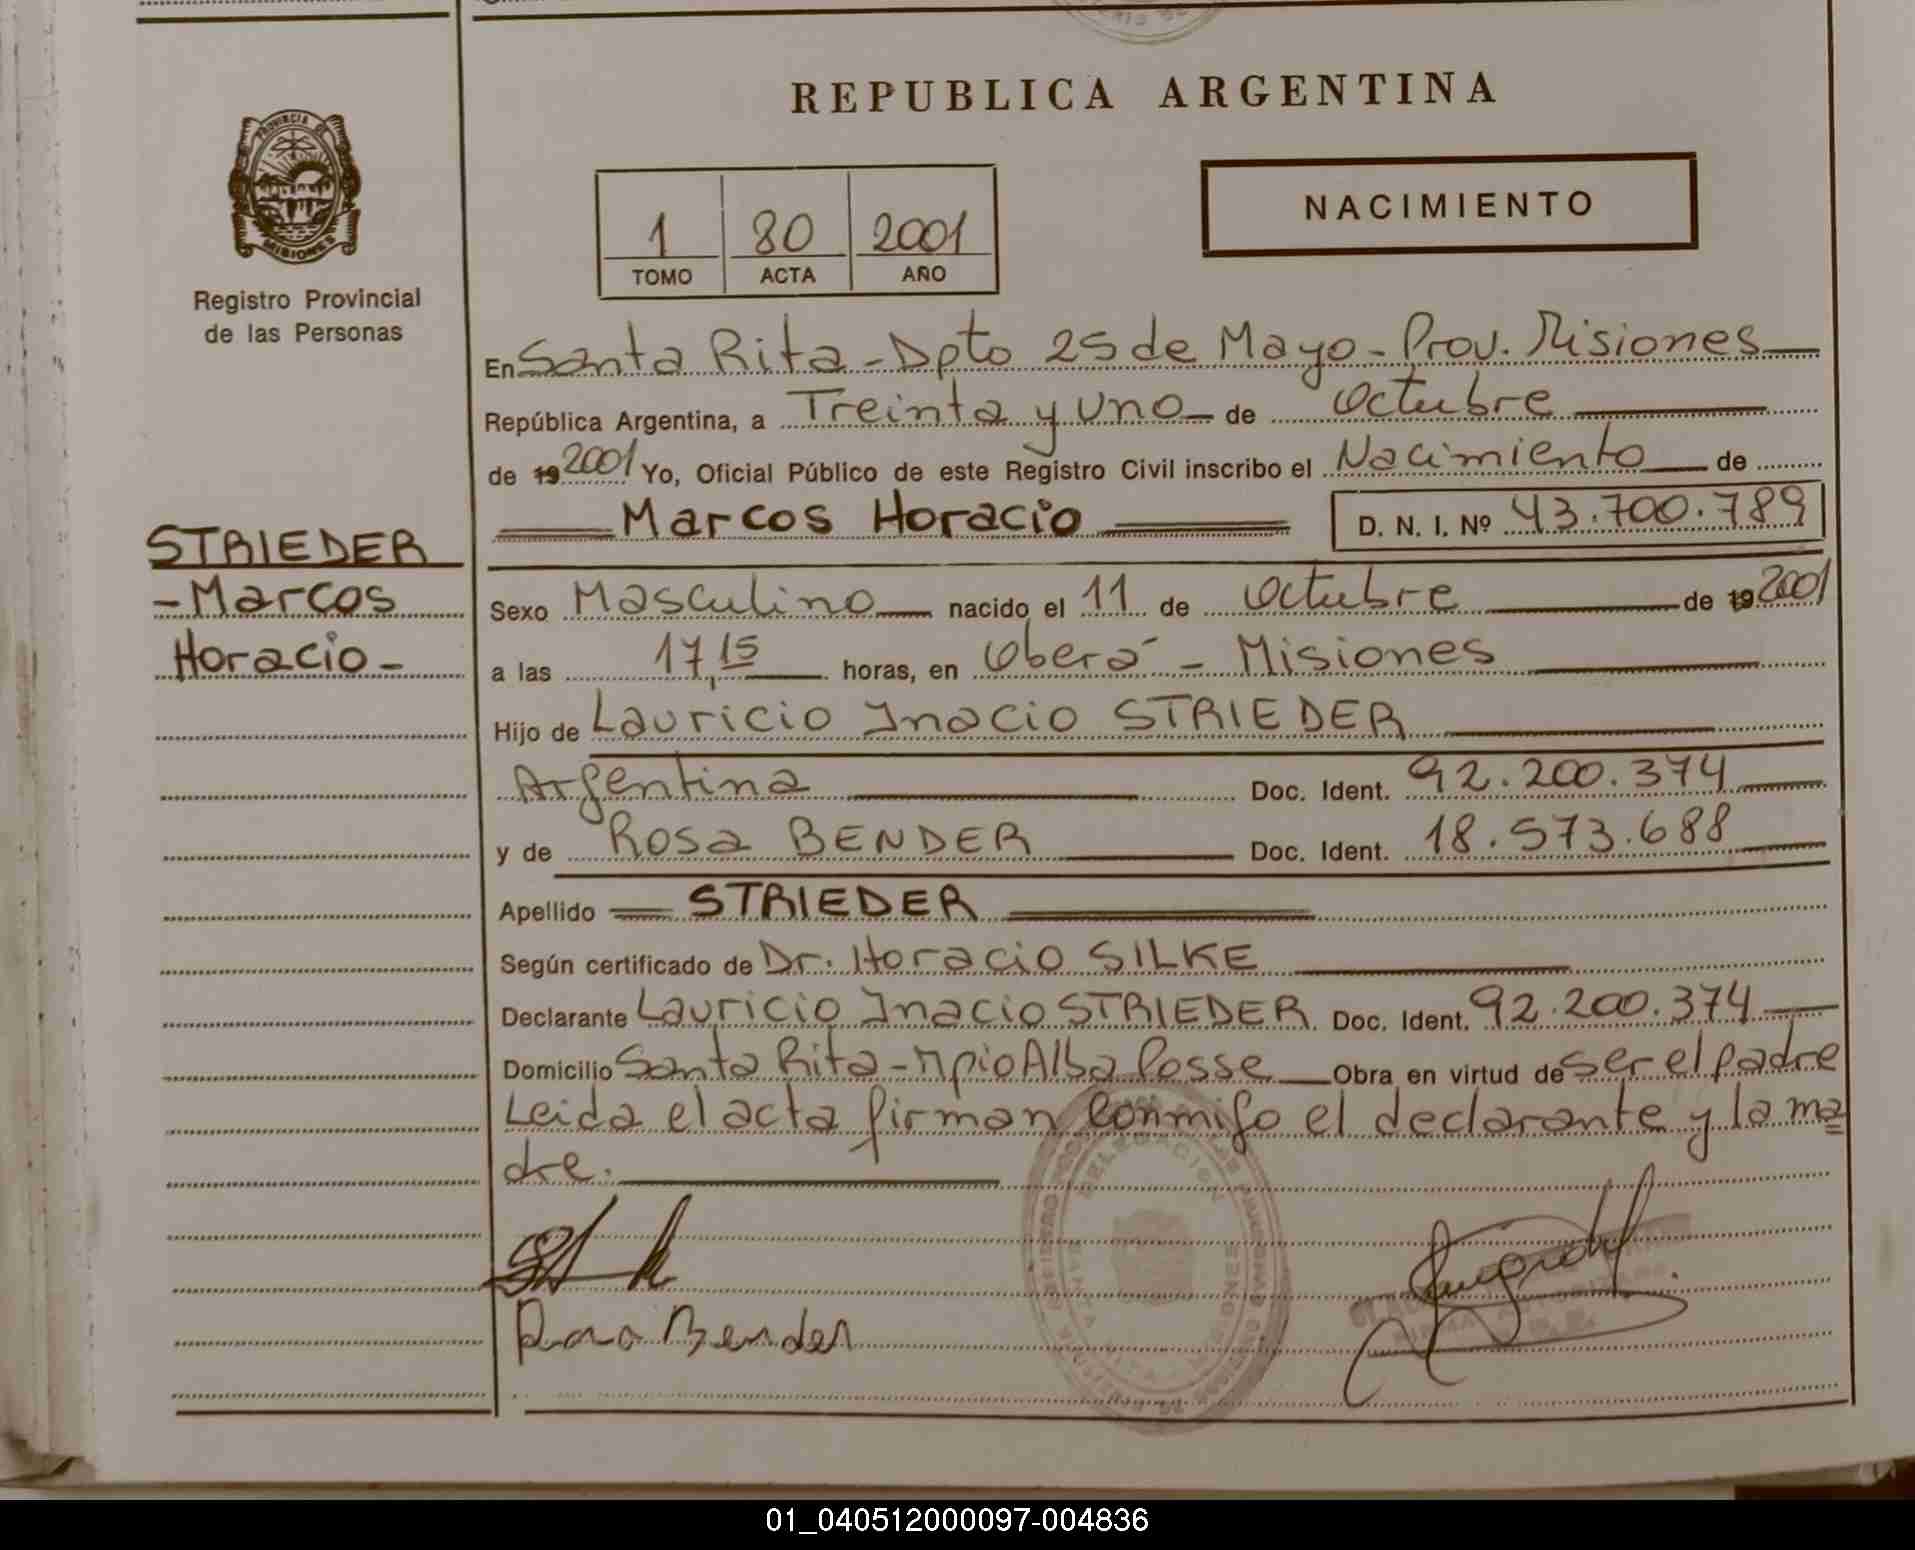 REPUBLICA ARGENTINA
PROVINCIA DE
MISIONES
Registro Provincial
de las Personas
1 80 2001
TOMO ACTA AÑO
NACIMIENTO
En Santa Rita - Dpto 25 de Mayo - Prov. Misiones
República Argentina, a Treinta y uno de Octubre
de 19 2001 Yo, Oficial Público de este Registro Civil inscribo el Nacimiento de
Marcos Horacio D. N. I. Nº 43.700.789
STRIEDER
- Marcos
Horacio -
Sexo Masculino nacido el 11 de Octubre de 19 2001
a las 17,15 horas, en Oberá - Misiones
Hijo de Lauricio Inacio STRIEDER
Argentina Doc. Ident. 92.200.374
y de Rosa BENDER Doc. Ident. 18.573.688
Apellido STRIEDER
Según certificado de Dr. Horacio SILKE
Declarante Lauricio Inacio STRIEDER Doc. Ident. 92.200.374
Domicilio Santa Rita - Mpio Alba Posse Obra en virtud de ser el padre
Leida el acta firman conmigo el declarante y la ma
dre.
DELEGACION
SANTA RITA
MISIONES
Rosa Bender
01_040512000097-004836